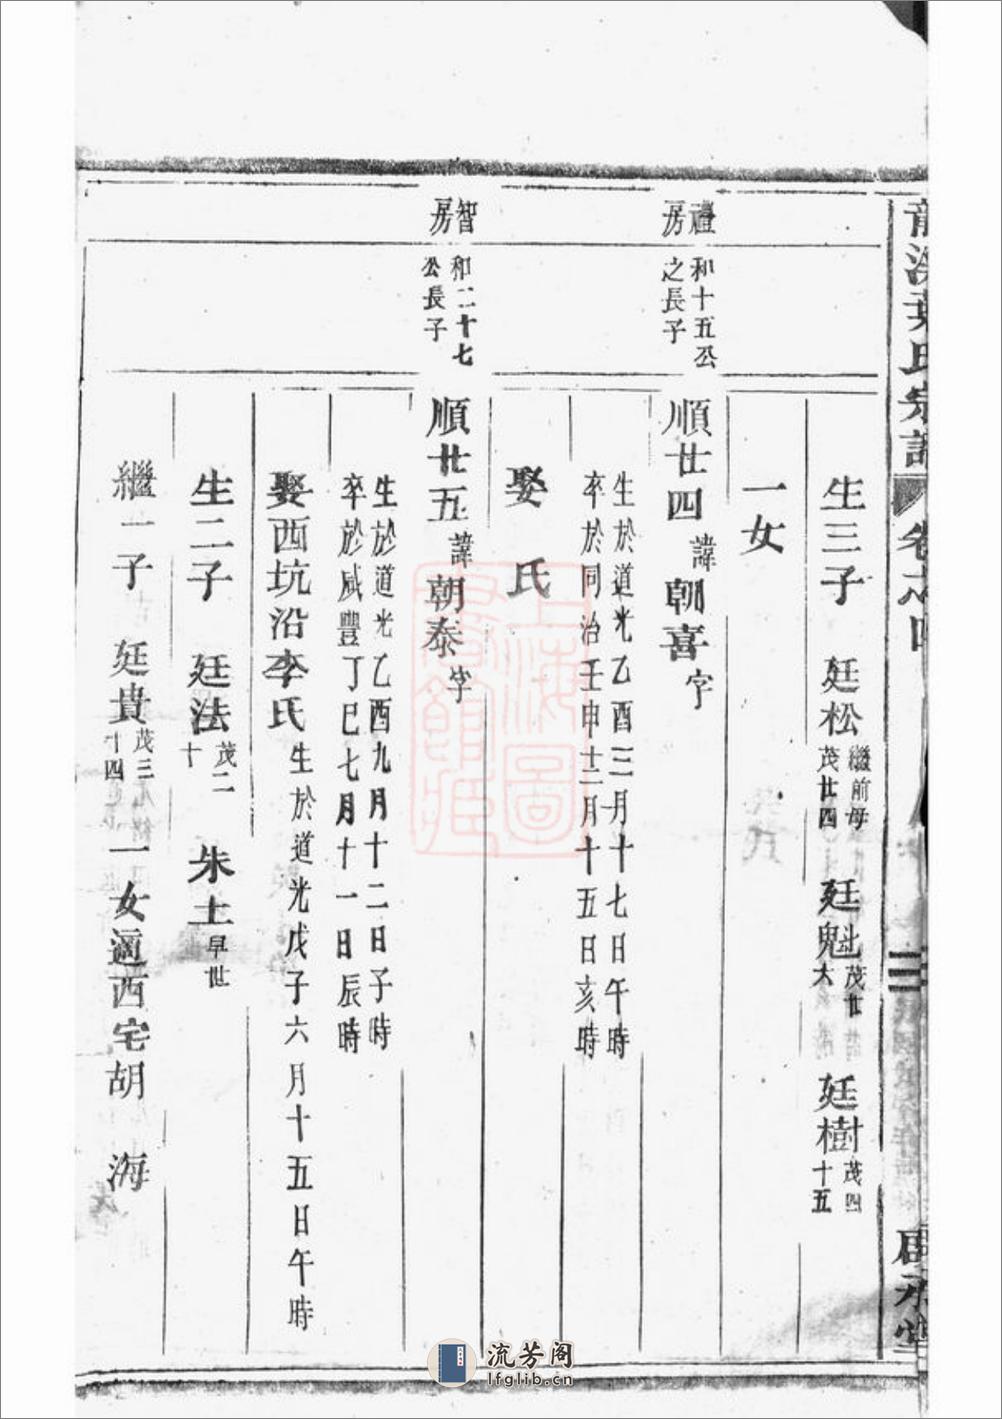 氏宗譜 卷之四
生三子 廷松 繼前母 茂廿四 廷魁 茂廿六 廷樹 茂四十五
一女
禮房 和十五公之長子 順廿四 諱朝喜 字
生於道光乙酉三月十七日午時
卒於同治壬申十二月十五日亥時
娶 氏
智房 和二十七公長子 順廿五 諱朝泰 字
生於道光乙酉九月十二日子時
卒於咸豐丁巳七月十一日辰時
娶西坑沿李氏 生於道光戊子六月十五日午時
生二子 廷法 茂二十 朱土 早世
繼一子 廷貴 茂三十四 一女適西宅胡 海
上海圖書館藏
流芳阁
lfglib.cn